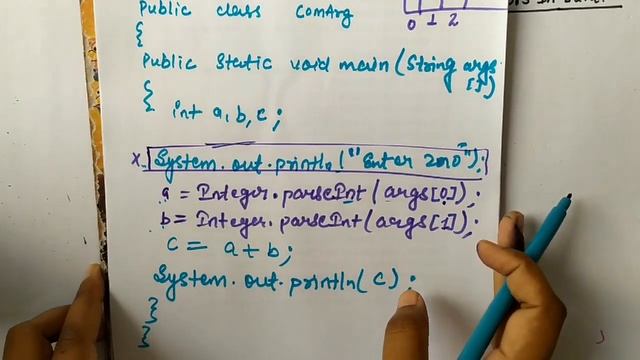 Public class ComArg
0 1 2
{
Public static void main(String args
[])
{
int a,b,c;
x. System.out.println("Enter 2no");
a = Integer.parseInt(args[0]);
b = Integer.parseInt(args[1]);
c = a+b;
System.out.println(c);
}
}